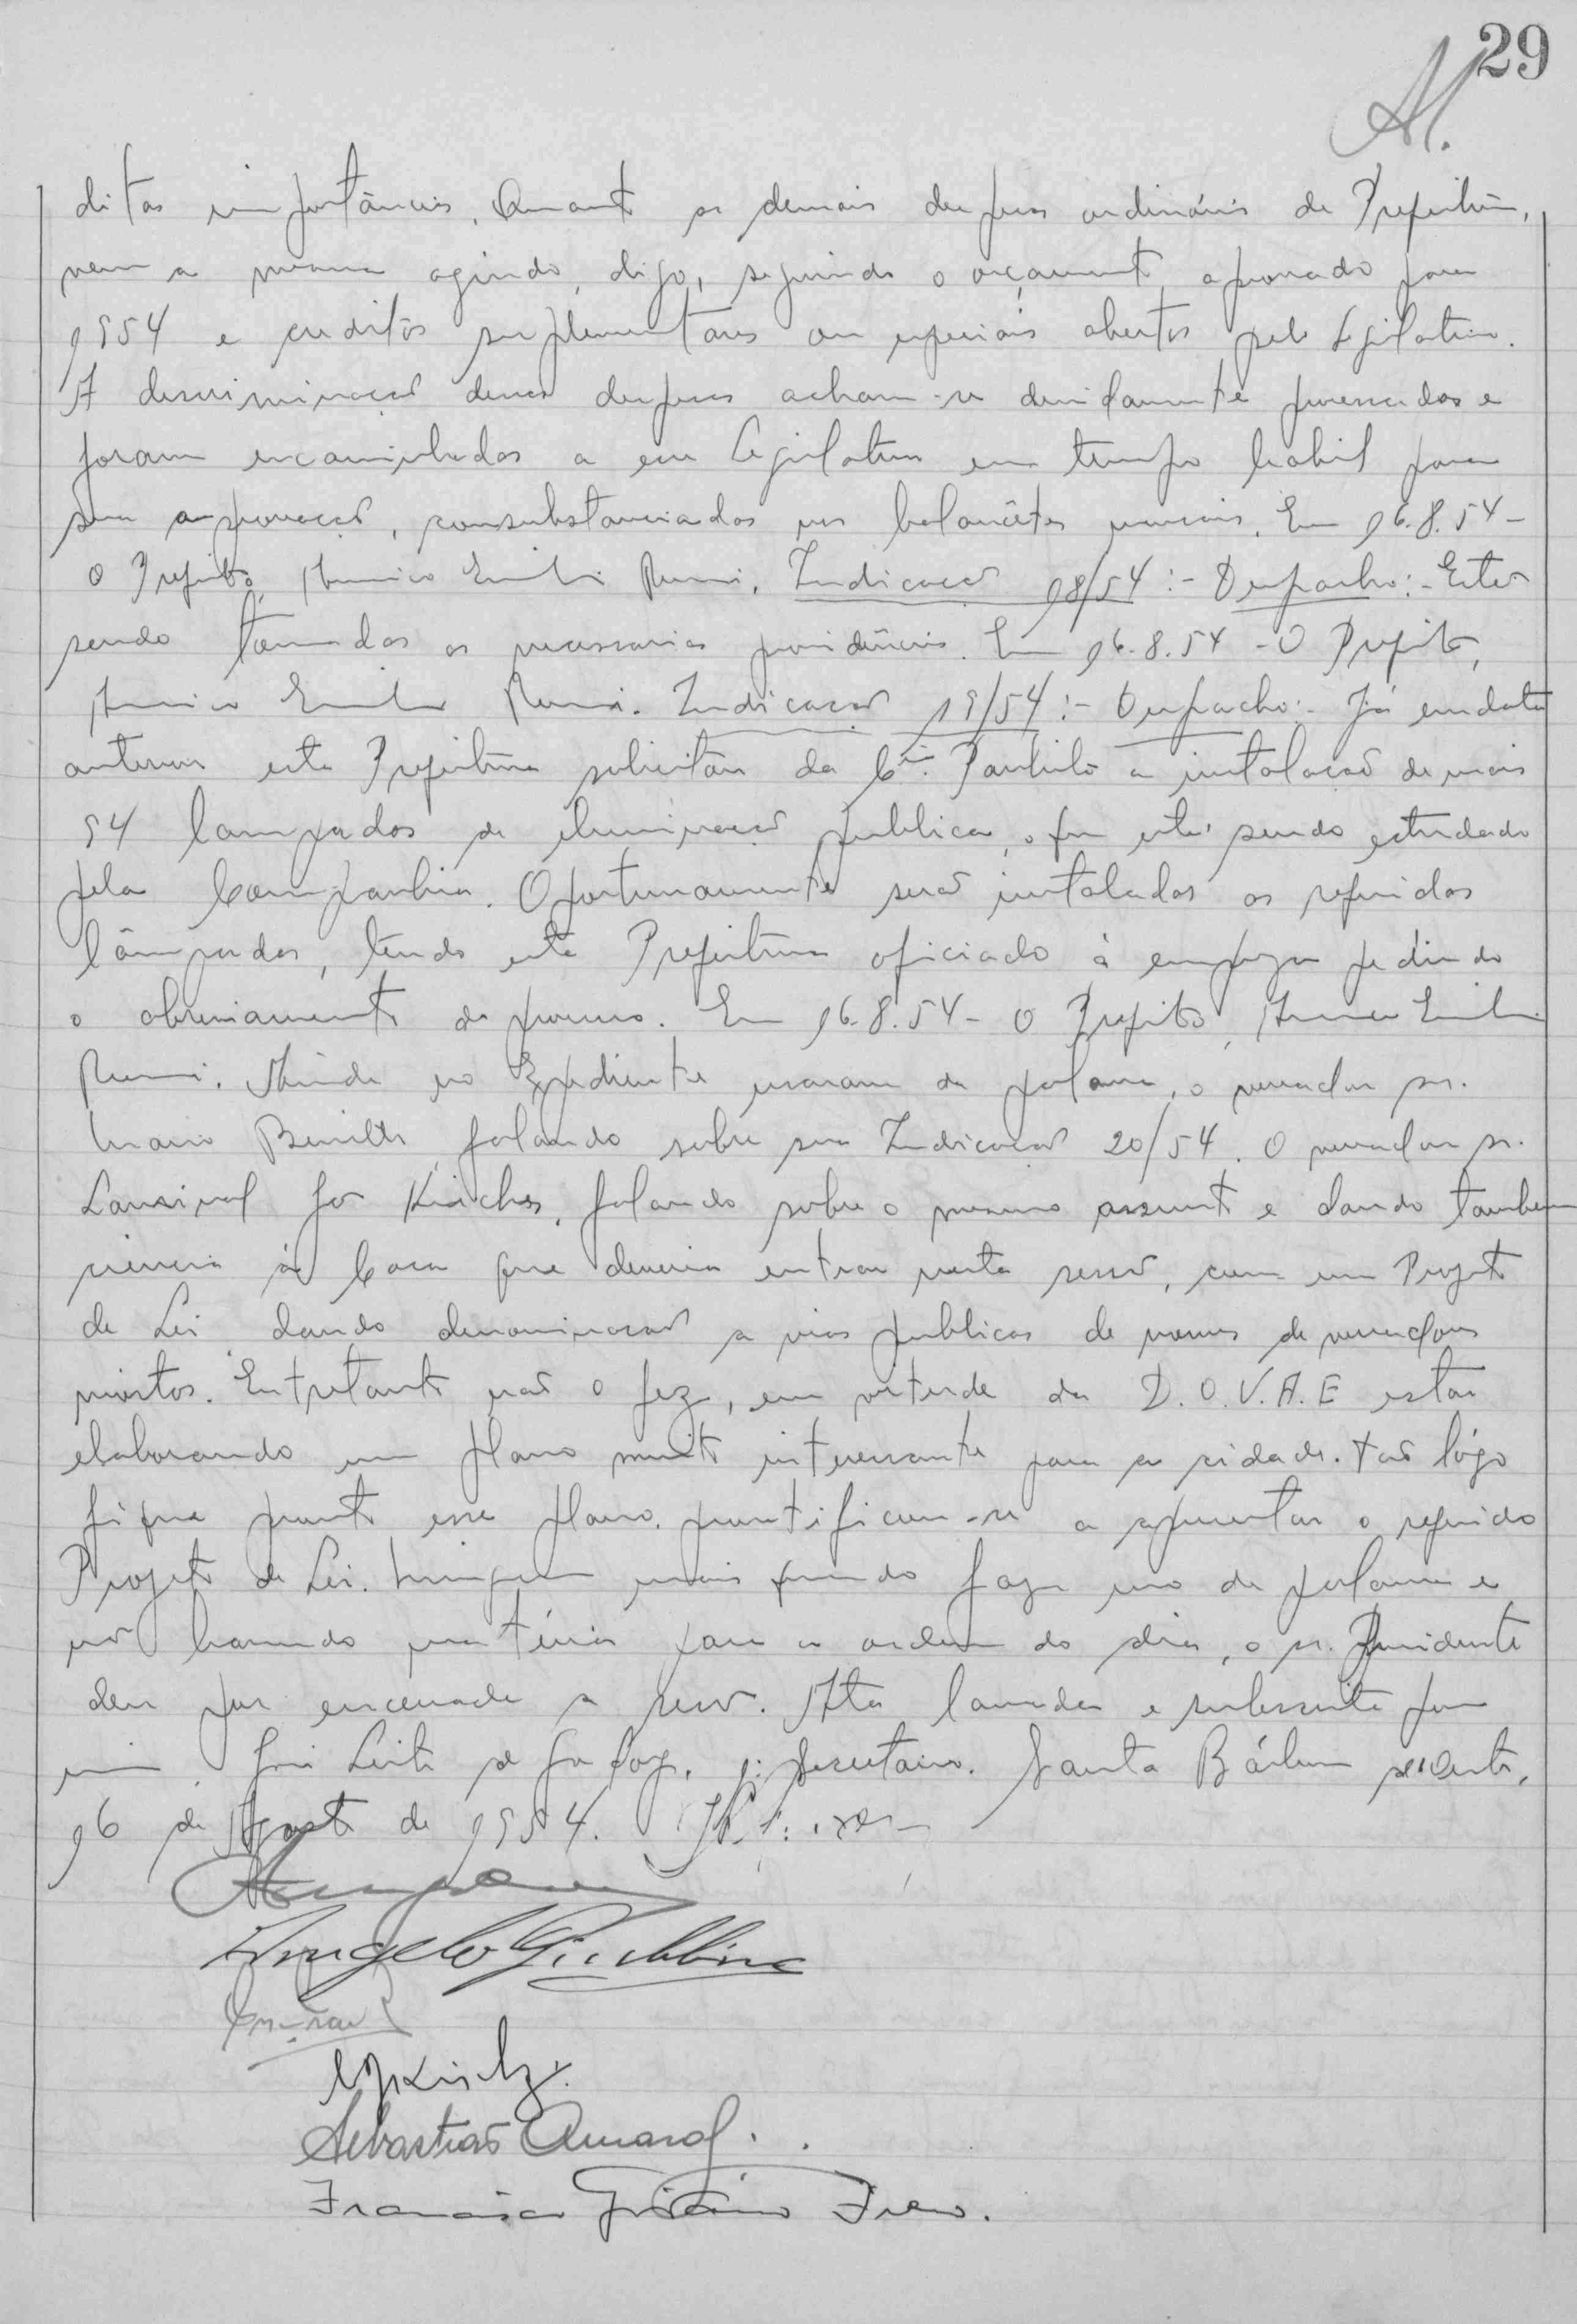 29
ditas importâncias. Quanto as demais despesas ordinárias da Prefeitura,
vem a mesma agindo, digo, seguindo o orçamento aprovado para
1954 e creditos suplementares ou especiais abertos pelo Legislativo.
A descriminação dessas despesas acham-se devidamente processadas e
foram encaminhadas a esse Legislativo em tempo habil para
sua aprovação, consubstanciadas nos balancêtes mensais. Em 16.8.54 -
O Prefeito, Americo Emilio Romi. Indicação 18/54:- Despacho:- Estão
sendo tomadas as necessarias providências. Em 16.8.54 - O Prefeito,
Americo Emilio Romi. Indicação 19/54:- Despacho:- Já em data
anterior esta Prefeitura solicitou da Cia. Paulista a instalação de mais
54 lampadas de iluminação publica, o que está sendo estudado
pela Companhia. Oportunamente serão instaladas as referidas
lâmpadas, tendo esta Prefeitura oficiado à empreza pedindo
o abreviamento do processo. Em 16.8.54 - O Prefeito, Americo Emilio
Romi. Ainda no Expediente usaram da palavra, o vereador sr.
falando sobre sua Indicação 20/54. O vereador sr.
falando sobre o mesmo assunto e dando tambem
ciencia à Casa que deveria entrar nesta sessão, com um Projeto
de Lei dando denominação a vias publicas de nomes de vereadores
mortos. Entretanto não o fez, em virtude da D.O.V.A.E estar
elaborando um plano muito interessante para a cidade. Tão lógo
fique pronto esse plano, prontificou-se a apresentar o referido
Projeto de Lei. Ninguem mais querendo fazer uso da palavra e
não havendo matéria para a ordem do dia, o sr. Presidente
deu por encerrada a sessão. Ata lavrada e subscrita por
mim, secretario. Santa Bárbara d'Oeste,
16 de Agosto de 1954.
Angelo Giubbina
Sebastião Amaral.
Francisco